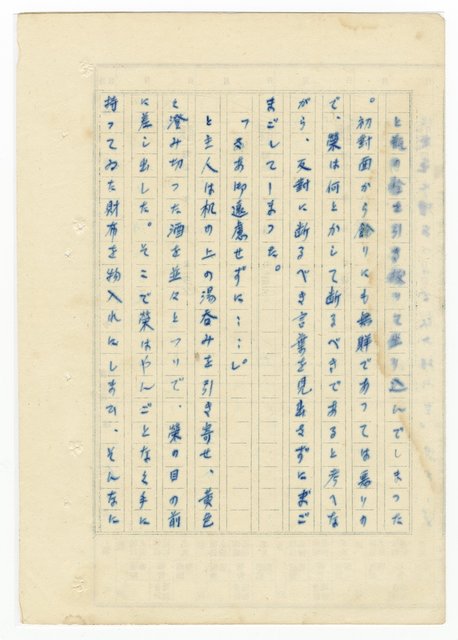 と瓶の栓を引き抜いて坐り込んでしまつた
。初対面から余りにも無躾であつては悪いの
で、栄は何とかして断るべきであると考へな
がら、反対に断るべき言葉を見出さずにまご
まごしてしまつた。
「まあ御遠慮せずに……」。
と主人は机の上の湯呑みを引き寄せ、黄色
く澄み切つた酒を並々とついで、栄の目の前
に差し出した。そこで栄はやんごとなく手に
持つてゐた財布を物入れにしまひ、そんなに